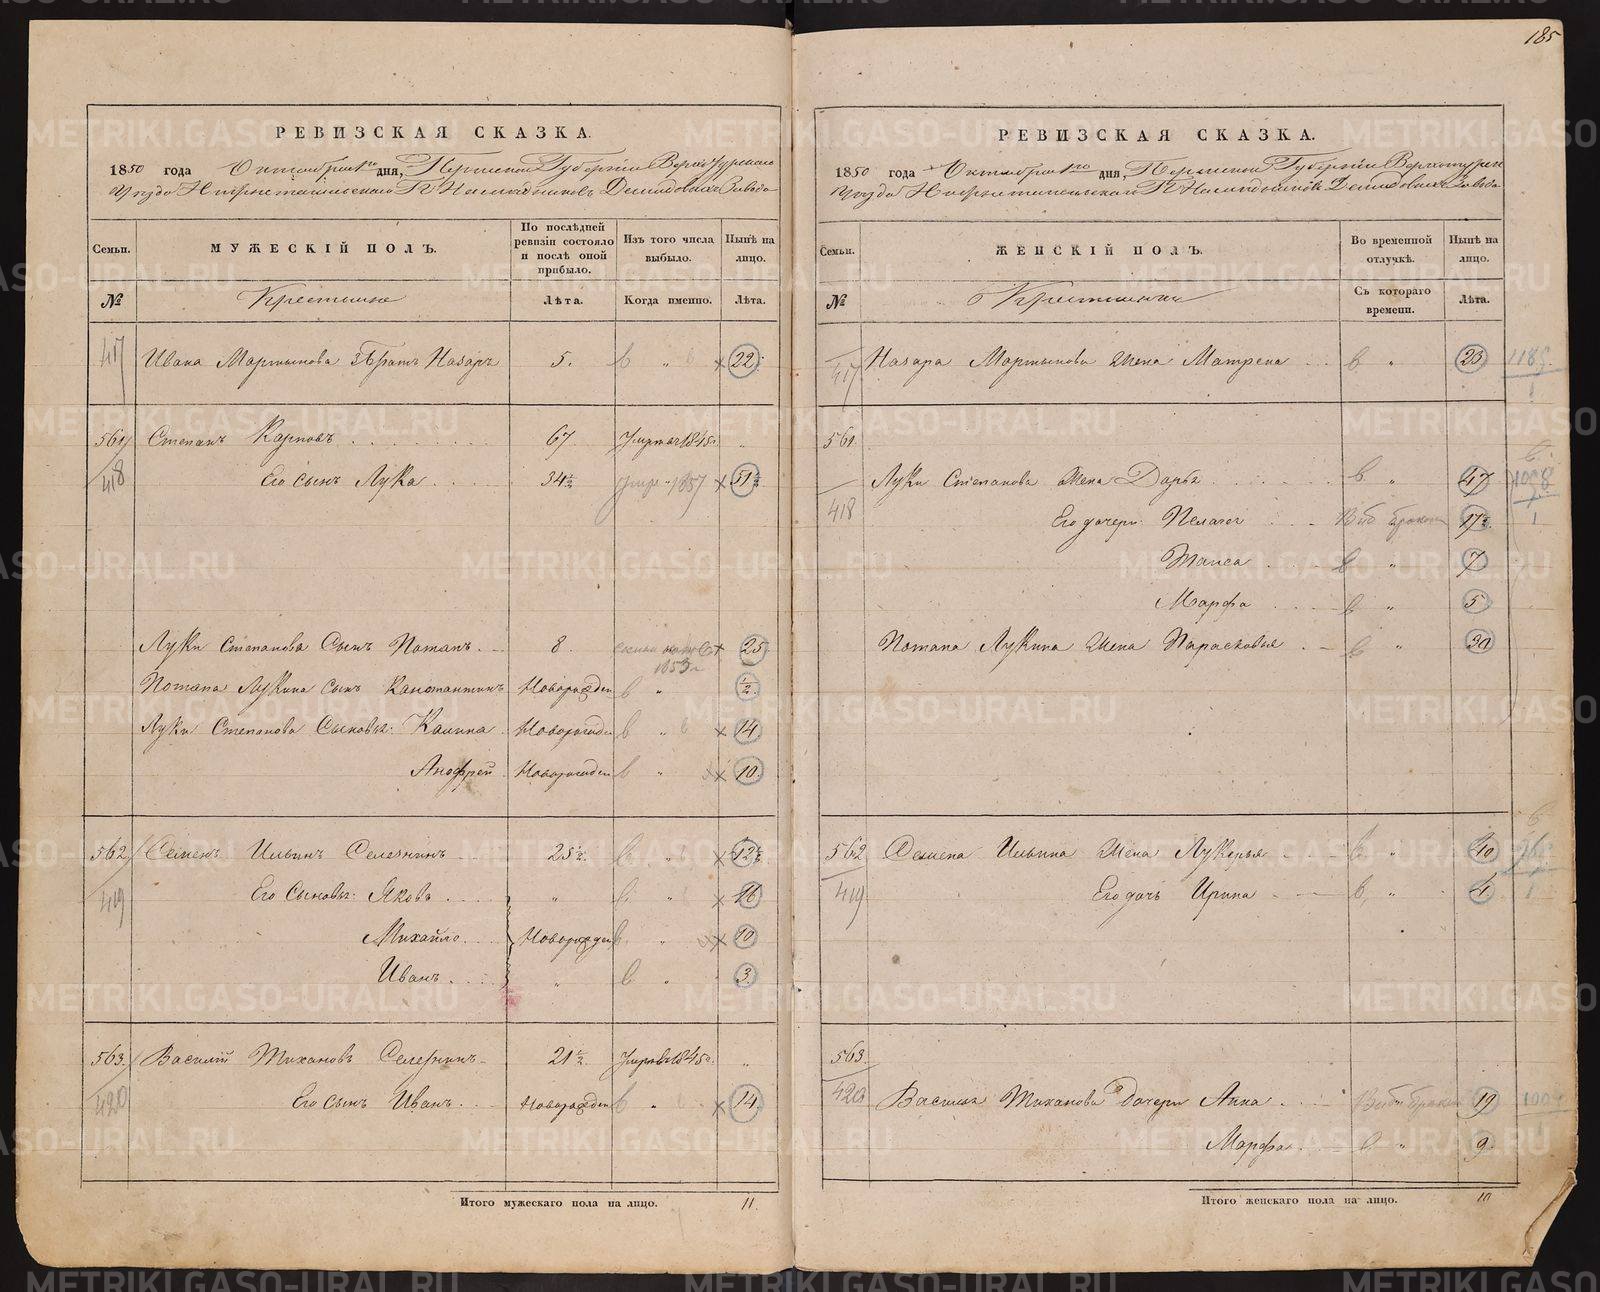 185
РЕВИЗСКАЯ СКАЗКА.
1850 года Октября 1го дня, Пермской Губерніи Верхотурскаго
Уѣзда Нижнетагильскаго Г. Наслѣдниковъ Демидовыхъ Завода
Семьи. МУЖЕСКІЙ ПОЛЪ. По послѣдней ревизіи состояло и послѣ оной прибыло. Изъ того числа выбыло. Нынѣ на лицо.
№ Крестьяне Лѣта. Когда именно. Лѣта.
417 Ивана Мартынова 3й братъ Назаръ 5. в „ × 22.
561 Степанъ Карповъ 67 Умеръ 1845 „
418 Его сынъ Лука 34½ умер 1857 × 51½
Луки Степанова Сынъ Потапъ 8. 1853 25
Потапа Лукина сынъ Константинъ Новорожден в „ ½
Луки Степанова Сыновья: Калина Новорожден в „ × 14
Анофрей Новорожден в „ × 10.
562 Семенъ Ильинъ Селезнинъ 25½ в „ × 42½
419 Его Сыновья: Яковъ „ в „ × 16
Михайло Новорожден в „ × 10
Иванъ „ в „ 3.
563 Василій Тихановъ Селезнинъ 21½ Умеръ 1845 „
420 Его сынъ Иванъ Новорожден в „ × 14
Итого мужескаго пола на лицо. 11.
РЕВИЗСКАЯ СКАЗКА.
1850 года Октября 1го дня, Пермской Губерніи Верхотурск
Уѣзда Нижнетагильскаго Г. Наслѣдниковъ Демидовыхъ Завода
Семьи. ЖЕНСКІЙ ПОЛЪ. Во временной отлучкѣ. Нынѣ на лицо.
№ Крестьянки Съ котораго времени. Лѣта.
417 Назара Мартынова жена Матрена в „ 23
561.
418 Луки Степанова жена Дарья в „ 47
Его дочери: Пелагея Выб браком 17½
Таиса в „ 7
Марфа в „ 5
Потапа Лукина жена Парасковья в 30
562 Семена Ильина жена Лукерья в „ 40
419 Его дочь Ирина в „ 1
563.
420 Василья Тиханова дочери Анна Выб браком 19
Марфа „ 9.
Итого женскаго пола на лицо. 10
METRIKI.GASO-URAL.RU